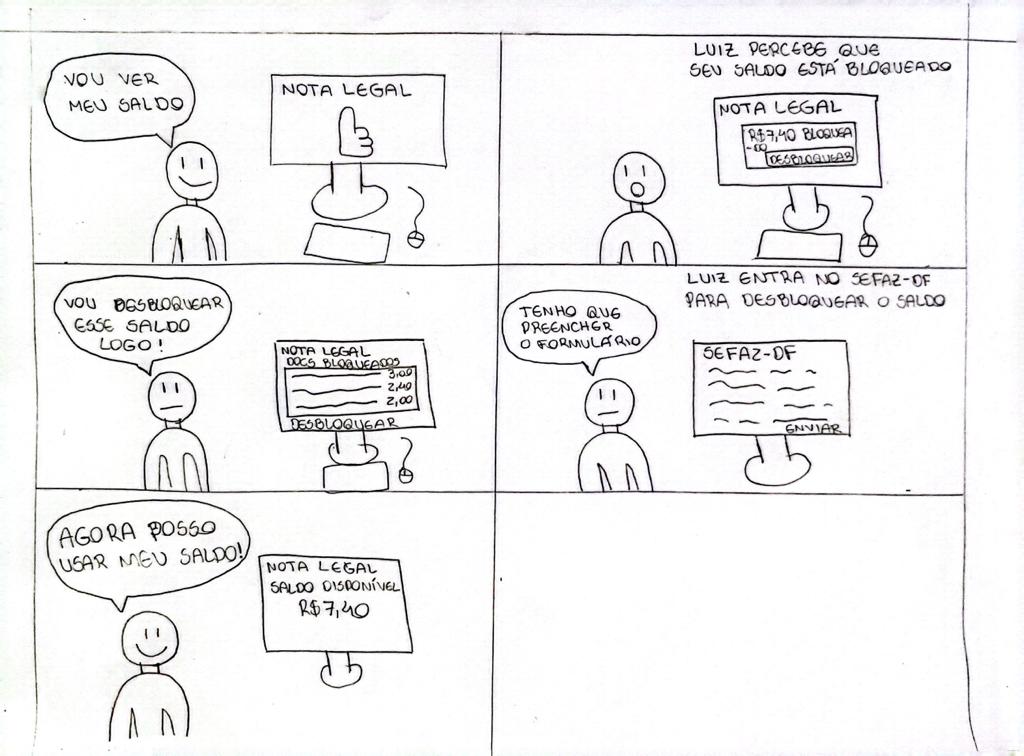 VOU VER
MEU SALDO
NOTA LEGAL
LUIZ PERCEBE QUE
SEU SALDO ESTÁ BLOQUEADO
NOTA LEGAL
R$7,40 BLOQUEA
-DO
DESBLOQUEAR
VOU DESBLOQUEAR
ESSE SALDO
LOGO!
NOTA LEGAL
DOCS BLOQUEADOS
3,00
2,40
2,00
DESBLOQUEAR
LUIZ ENTRA NO SEFAZ-DF
PARA DESBLOQUEAR O SALDO
TENHO QUE
PREENCHER
O FORMULÁRIO
SEFAZ-DF
ENVIAR
AGORA POSSO
USAR MEU SALDO!
NOTA LEGAL
SALDO DISPONÍVEL
R$7,40